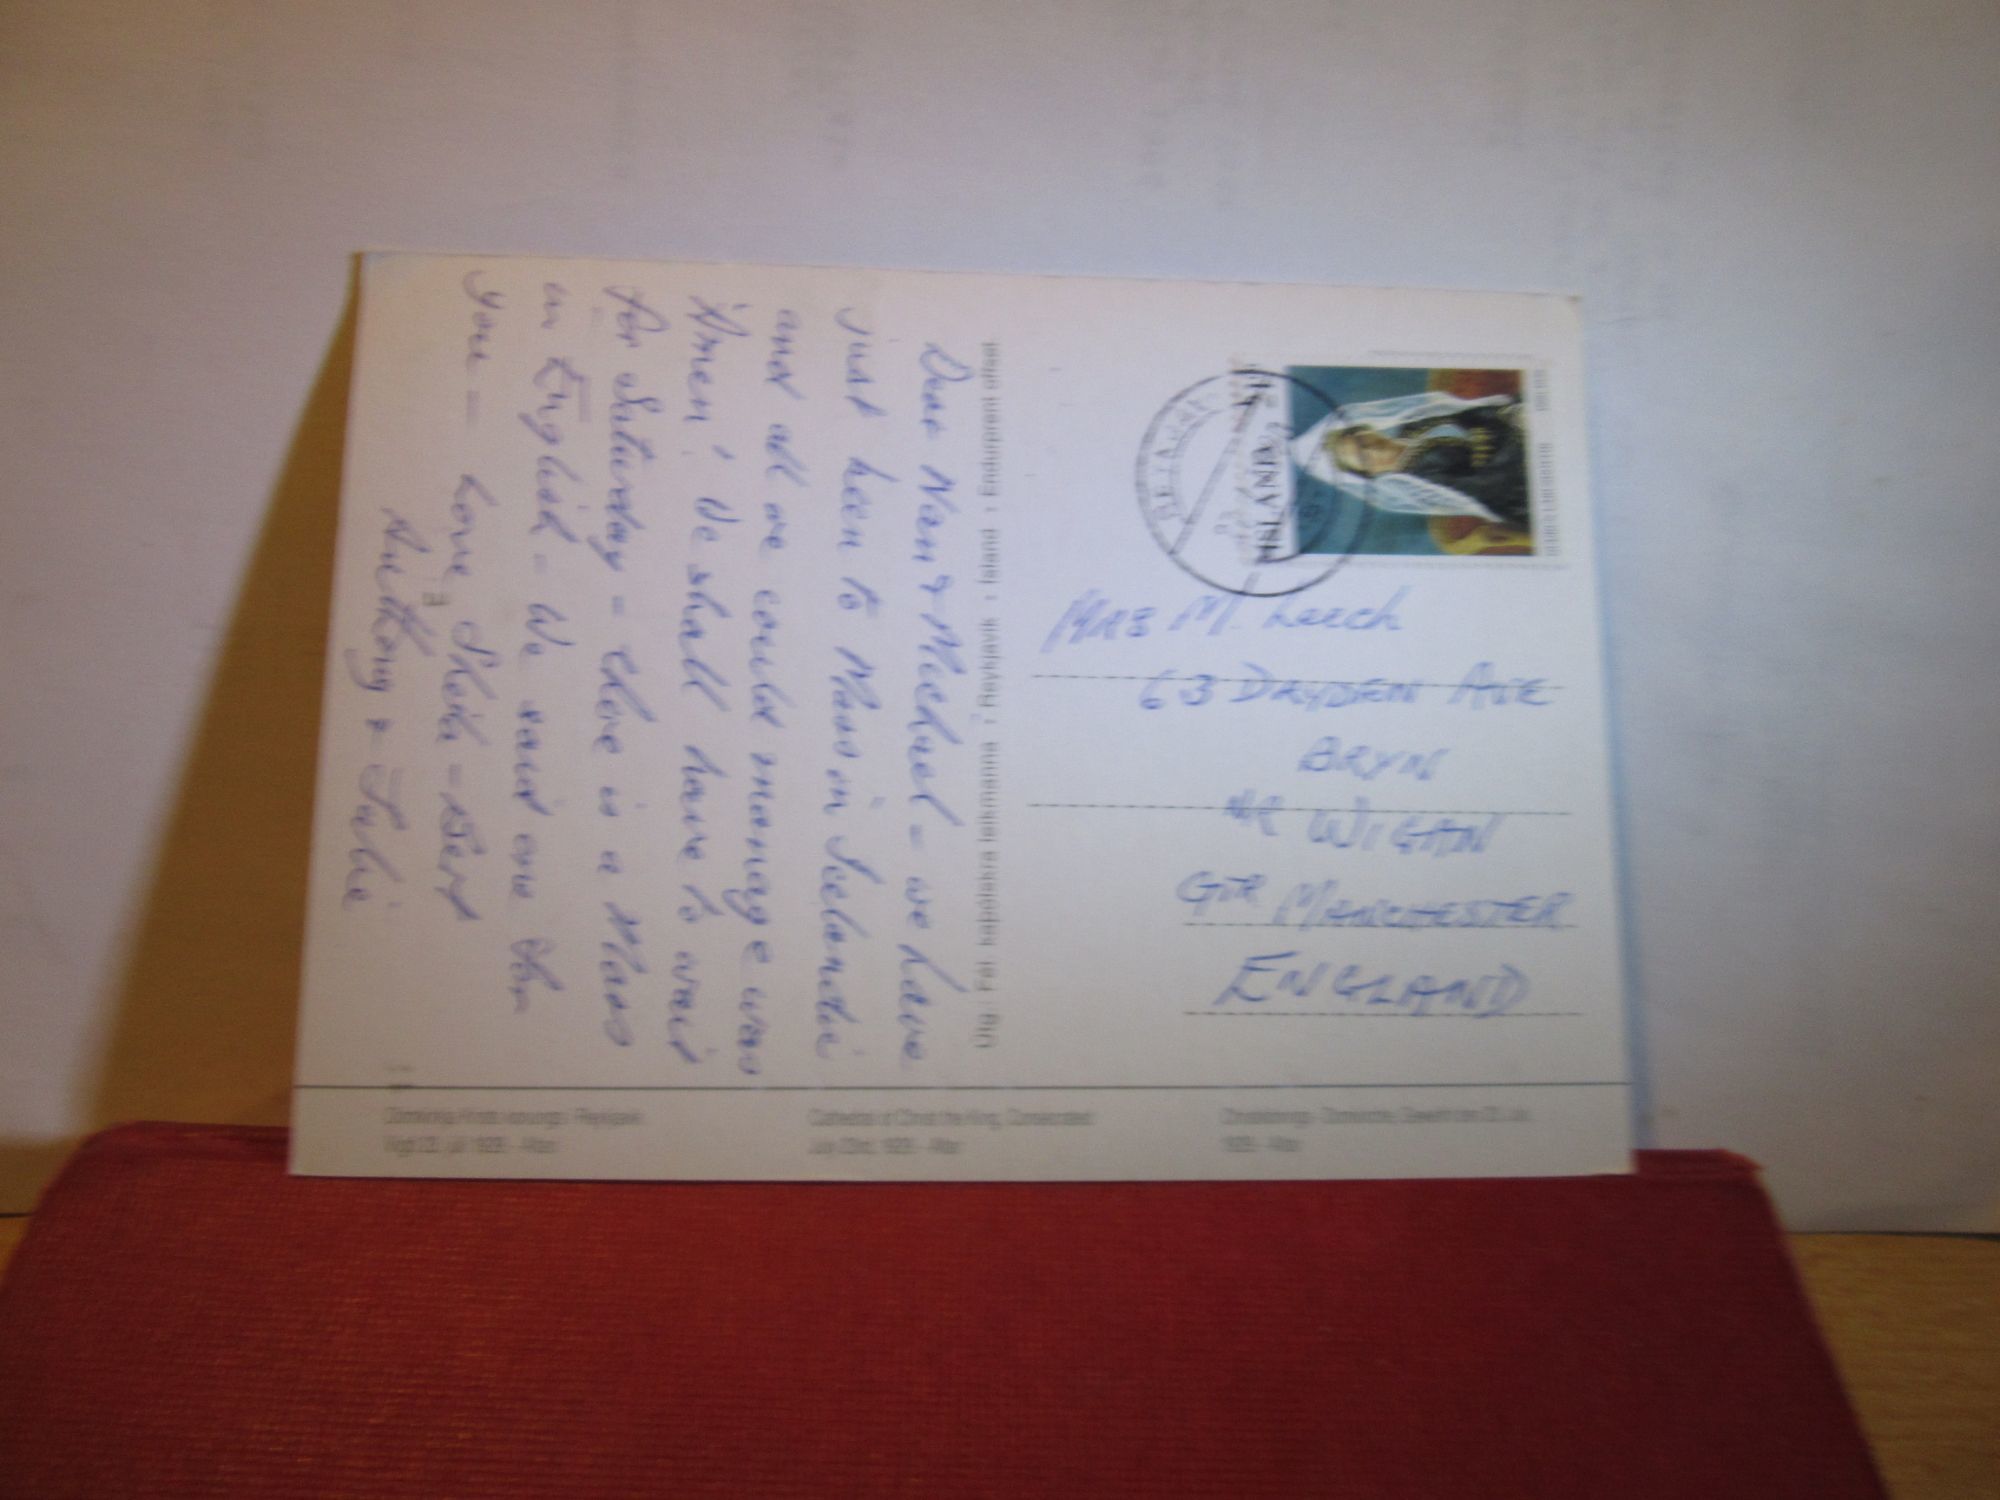 Dear Nan & Michael - we have
just been to Mass in Icelandic
and all we could manage was
Amen! We shall have to wait
for Saturday - there is a Mass
in English - We said one for
you - Love Sheila - Bert
Anthony & Julie
Útg.: Fél. kaþólskra leikmanna í Reykjavík Ísland Enduprent offset
ÍSLAND
Mrs M. Leech
63 DRYDEN AVE
BRYN
NR WIGAN
GTR MANCHESTER
ENGLAND
Dómkirkja Krists konungs Reykjavík
Vígð 23. júlí 1929. - Altar
Cathedral of Christ the King, Consecrated
July 23rd, 1929. - Altar
1929. - Altar